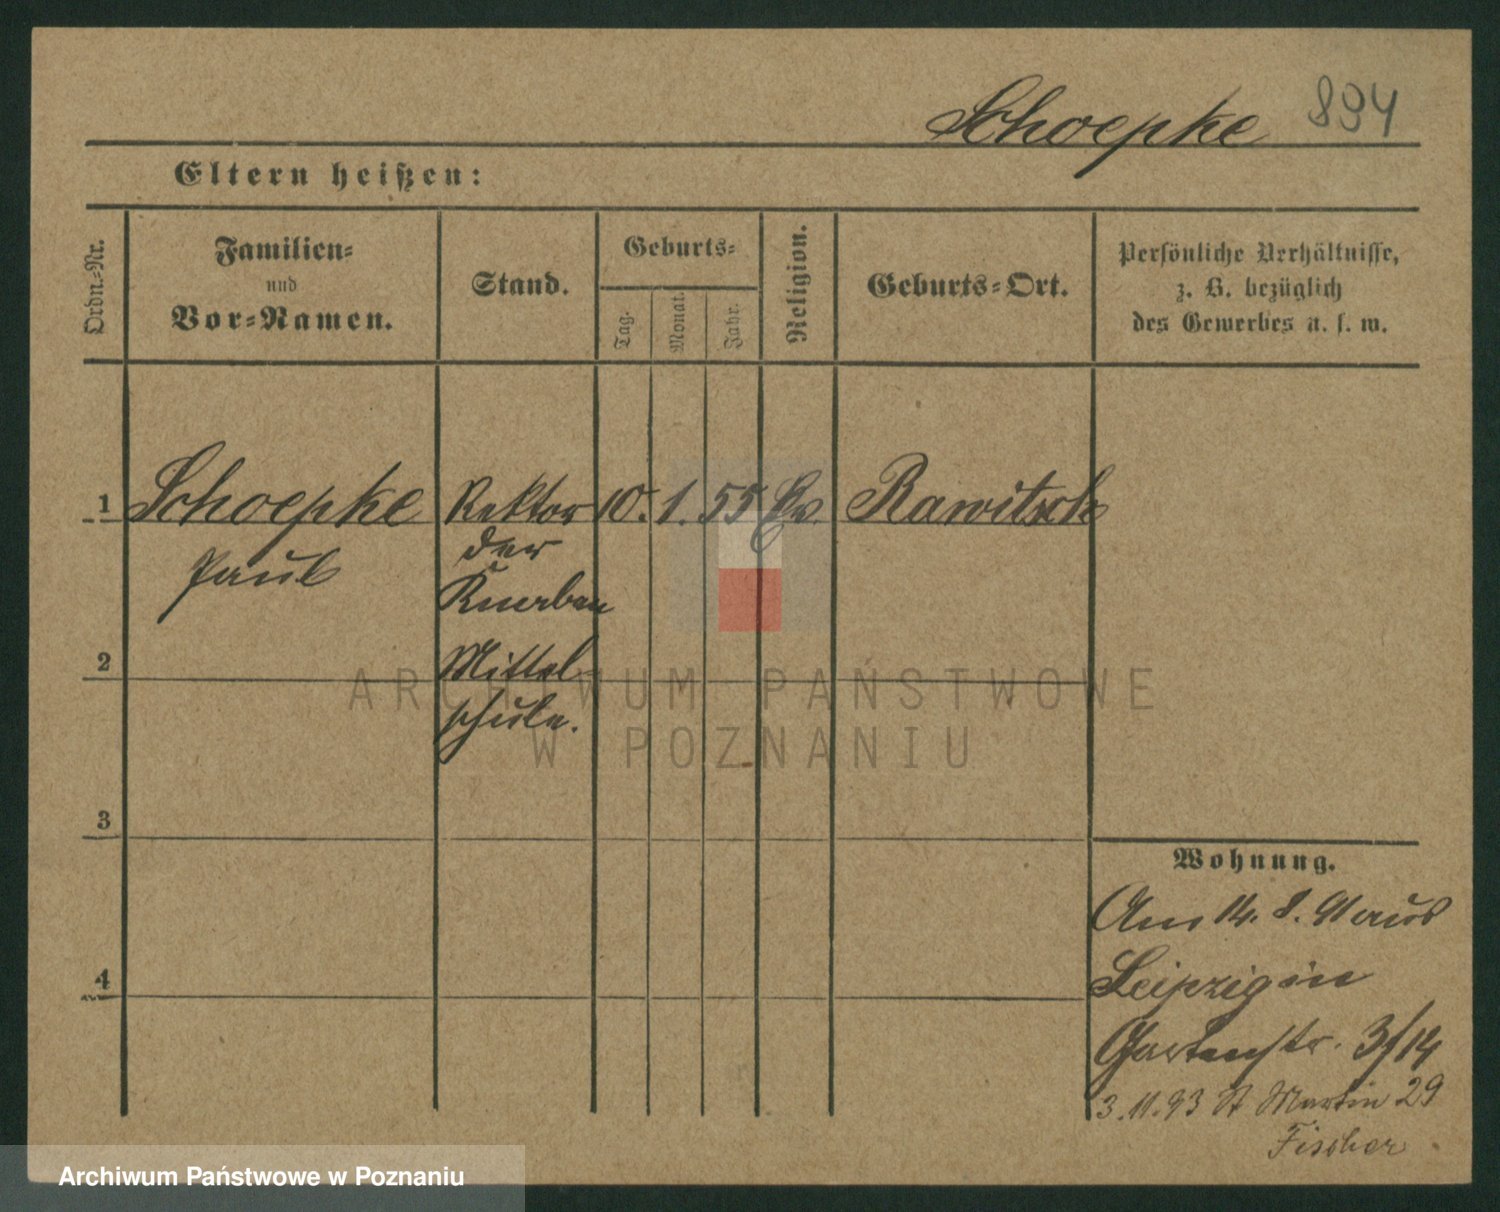 Schoepke 894
Eltern heißen:
Ordn.-Nr.
Familien-
und
Vor-Namen.
Stand.
Geburts-
Tag.
Monat.
Jahr.
Religion.
Geburts-Ort.
Persönliche Verhältnisse,
z. B. bezüglich
des Gewerbes u. s. w.
1 Schoepke Rektor 10. 1. 55 Ev. Rawitsch
Paul
der
Knaben
2 Mittel-
schule.
3
4
Wohnung.
Am 14. 8. 91 aus
Leipzig in
Gartenstr. 3/14
3. 11. 93 St Martin 29
Fischer
ARCHIWUM PAŃSTWOWE
W POZNANIU
Archiwum Państwowe w Poznaniu